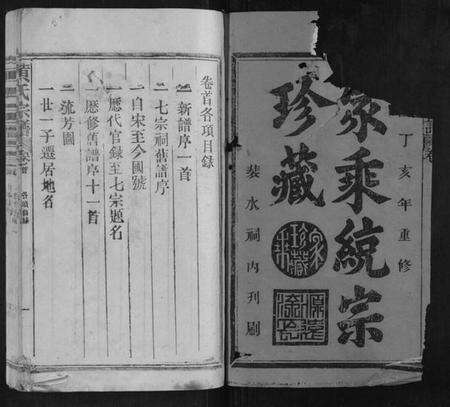 丁亥年重修
家乘統宗
珍藏
裝水祠內刊刷
卷首各項目錄
一新譜序一首
一七宗祠舊譜序
一自宋至今國號
一歷代官錄至七宗題名
一歷修舊譜序十一首
一流芳圖
一世一子遷居地名